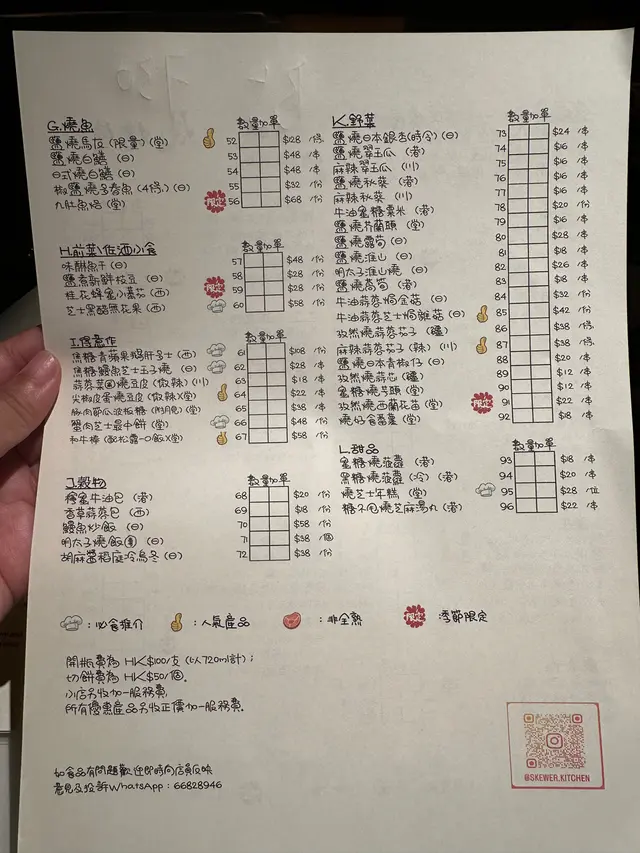 G.燒魚
數量加單
鹽燒馬友(限量)(堂) 52 $28 /條
鹽燒白鱔 (日) 53 $48 /本
日式燒白鱔 (日) 54 $48 /本
椒鹽燒多春魚 (4條) (日) 55 $32 /份
九肚魚焙 (堂) 限定 56 $68 /份
H.前菜\佐酒小食
數量加單
味醂魚干 (日) 57 $48 /份
鹽煮新鮮枝豆 (日) 58 $28 /份
桂花蜂蜜小蕃茄 (西) 限定 59 $28 /份
芝士黑醋無花果 (西) 60 $58 /份
I.得意作
數量加單
焦糖青蘋果鵝肝多士 (西) 61 $108 /份
焦糖鰻魚芝士玉子燒 (日) 62 $28 /本
蒜蓉菜圃燒豆皮 (微辣) (川) 63 $18 /本
尖椒皮蛋燒豆皮 (微辣)(堂) 64 $22 /本
豚肉節瓜波板糖 (附明見) (堂) 65 $38 /本
蟹肉芝士最中餅 (堂) 66 $48 /份
和牛棒 (配松露一口飯)(堂) 67 $58 /份
J.穀物
數量加單
椿蜜牛油巴 (港) 68 $20 /份
香草蒜蓉巴 (西) 69 $18 /份
鰻魚炒飯 (日) 70 $58 /份
明太子燒飯團 (日) 71 $38 /個
胡麻醬稻庭冷烏冬 (日) 72 $38 /份
K.野菜
數量加單
鹽燒日本銀杏(時令) (日) 73 $24 /本
鹽燒翠玉瓜 (港) 74 $16 /本
麻辣翠玉瓜 (川) 75 $16 /本
鹽燒秋葵 (港) 76 $16 /本
麻辣秋葵 (川) 77 $16 /本
牛油蜜糖粟米 (港) 78 $20 /本
鹽燒芥蘭頭 (堂) 79 $16 /本
鹽燒露筍 (日) 80 $28 /本
鹽燒淮山 (日) 81 $18 /本
明太子淮山燒 (日) 82 $26 /本
鹽燒萵筍 (港) 83 $18 /本
牛油蒜蓉焗金菇 (日) 84 $32 /份
牛油蒜蓉芝士焗雜菇 (日) 85 $42 /份
孜然燒蒜蓉茄子 (疆) 86 $38 /條
麻辣蒜蓉茄子 (辣) (川) 87 $38 /條
鹽燒日本青椒仔 (日) 88 $20 /本
孜然燒蒜芯 (疆) 89 $12 /本
蜜糖燒芋頭 (堂) 90 $12 /本
孜然燒西蘭花苗 (堂) 限定 91 $22 /本
燒仔食番薯 (堂) 92 $18 /本
L.甜品
數量加單
蜜糖燒菠蘿 (港) 93 $18 /本
黑糖燒菠蘿 (冷) (港) 94 $22 /本
燒芝士年糕 (堂) 95 $28 /位
糖不甩燒芝麻湯丸 (港) 96 $22 /本
:必食推介 :人氣產品 :非全熟 限定 :季節限定
開瓶費為 HK$100/支 (以720ml計);
切餅費為 HK$50/個.
小店另收加一服務費.
所有優惠產品另收正價加一服務費.
@SKEWER.KITCHEN
如食品有問題歡迎即時向店員反映
意見及投訴WhatsApp:66828946